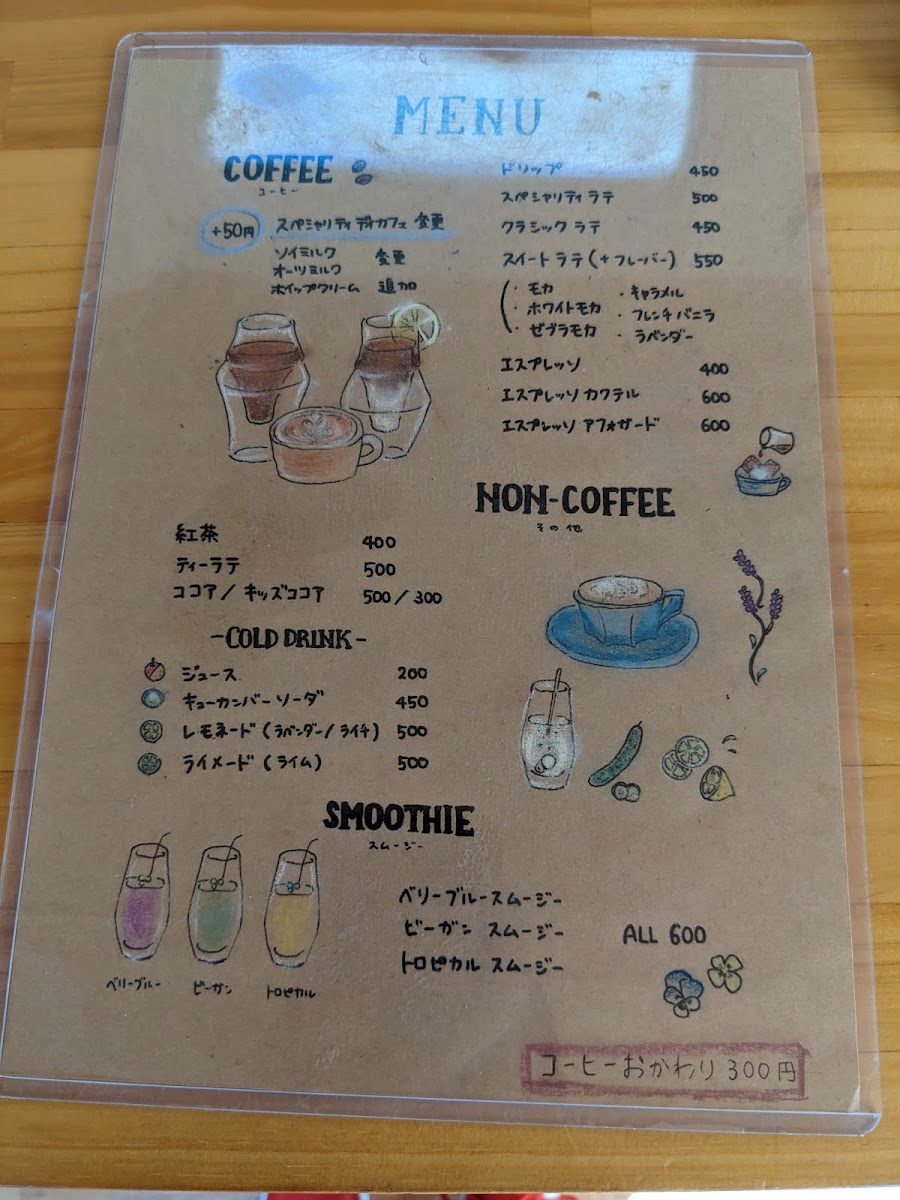 MENU
COFFEE
コーヒー
+50円 スペシャリティ ディカフェ 変更
ソイミルク 変更
オーツミルク
ホイップクリーム 追加
ドリップ 450
スペシャリティ ラテ 500
クラシック ラテ 450
スイート ラテ (+ フレーバー) 550
・モカ ・キャラメル
・ホワイトモカ ・フレンチバニラ
・ゼブラモカ ・ラベンダー
エスプレッソ 400
エスプレッソ カクテル 600
エスプレッソ アフォガード 600
NON-COFFEE
その他
紅茶 400
ティーラテ 500
ココア / キッズココア 500 / 300
-COLD DRINK-
ジュース 200
キューカンバー ソーダ 450
レモネード (ラベンダー/ライチ) 500
ライメード (ライム) 500
SMOOTHIE
スムージー
ベリーブルースムージー
ビーガン スムージー ALL 600
トロピカル スムージー
ベリーブルー ビーガン トロピカル
コーヒーおかわり 300円